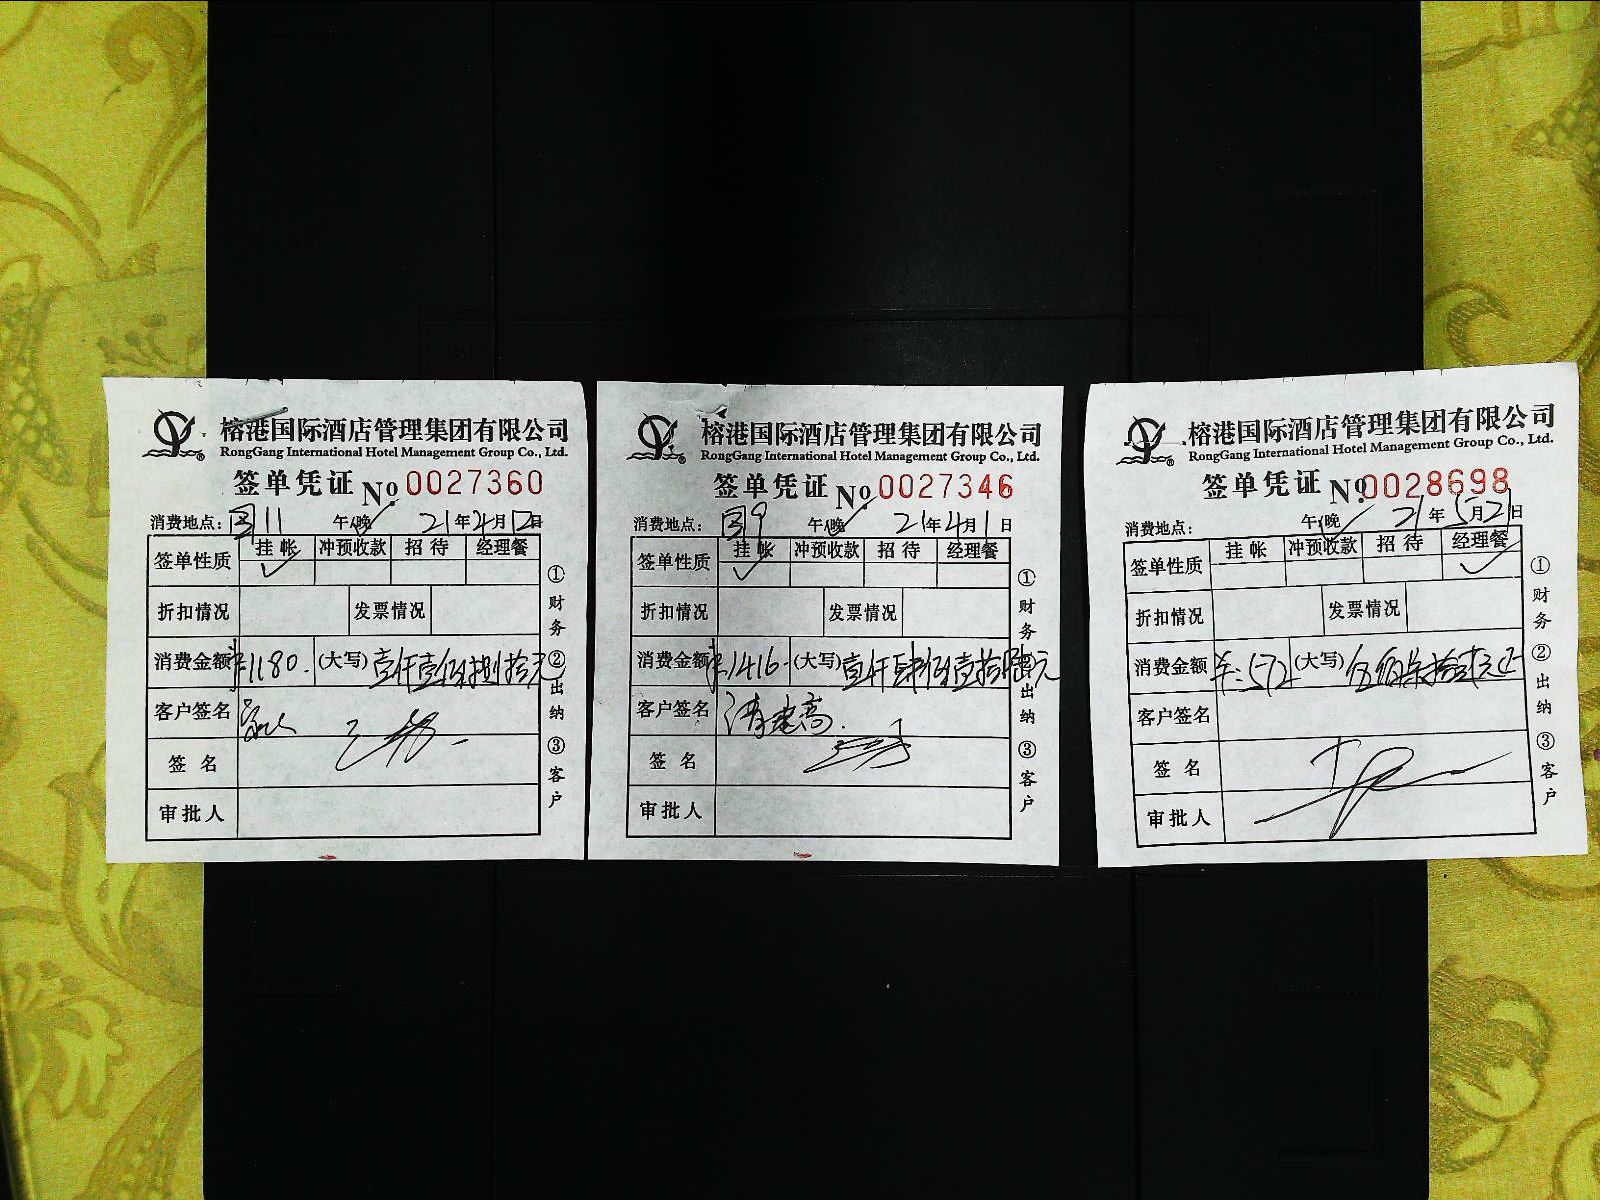 榕港国际酒店管理集团有限公司
RongGang International Hotel Management Group Co., Ltd.
签单凭证 No 0027360
消费地点： 11 午/晚 21年4月12日
签单性质 挂帐 冲预收款 招待 经理餐
折扣情况 发票情况
消费金额 ¥1180. (大写) 壹仟壹佰捌拾元
客户签名
签名
审批人
①财务 ②出纳 ③客户
榕港国际酒店管理集团有限公司
RongGang International Hotel Management Group Co., Ltd.
签单凭证 No 0027346
消费地点： 9 午/晚 21年4月1日
签单性质 挂帐 冲预收款 招待 经理餐
折扣情况 发票情况
消费金额 ¥1416. (大写) 壹仟肆佰壹拾陆元
客户签名
签名
审批人
①财务 ②出纳 ③客户
榕港国际酒店管理集团有限公司
RongGang International Hotel Management Group Co., Ltd.
签单凭证 No 0028698
消费地点： 午/晚 21年5月21日
签单性质 挂帐 冲预收款 招待 经理餐
折扣情况 发票情况
消费金额 ¥:572 (大写) 伍佰柒拾贰元正
客户签名
签名
审批人
①财务 ②出纳 ③客户